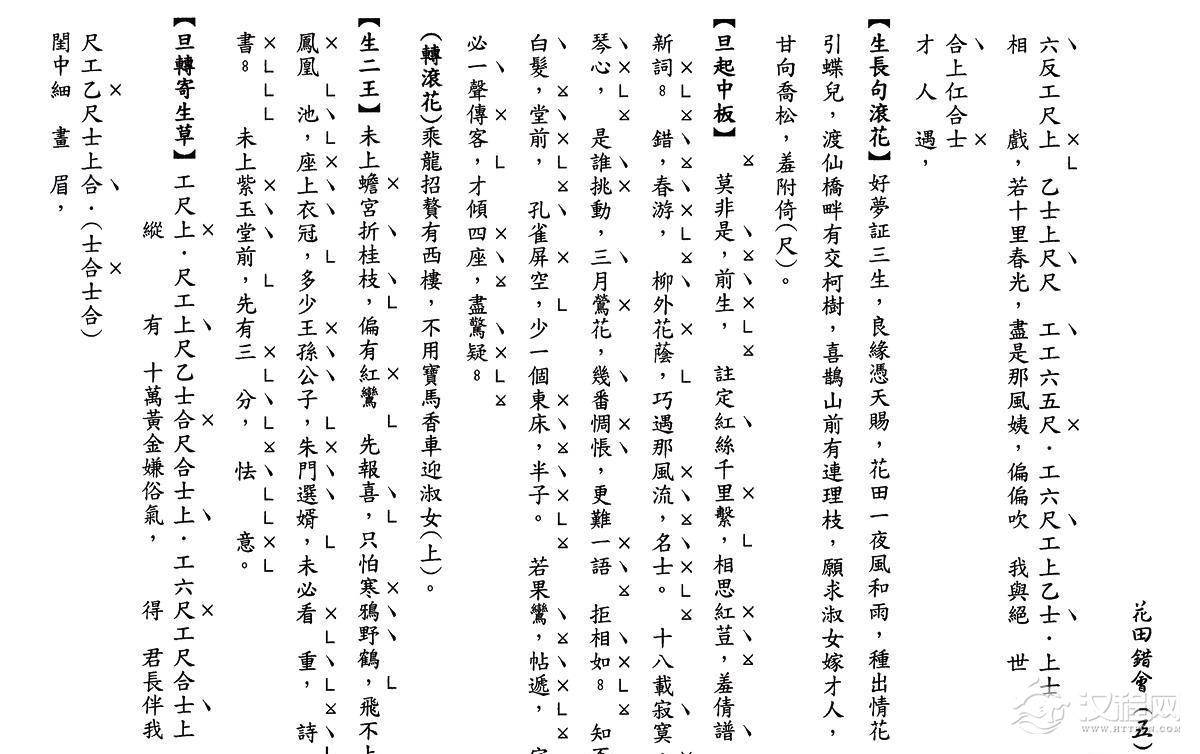 花田錯會（五）
六反工尺上 乙士上尺尺 工工六五尺．工六尺工上乙士．上士
相 戲，若十里春光，盡是那風姨，偏偏吹 我與絕 世
合上仜合士
才 人 遇，
【生長句滾花】好夢証三生，良緣憑天賜，花田一夜風和雨，種出情花
引蝶兒，渡仙橋畔有交柯樹，喜鵲山前有連理枝，願求淑女嫁才人，
甘向喬松，羞附倚（尺）。
【旦起中板】 莫非是，前生， 註定紅絲千里繫，相思紅荳，羞倩譜
新詞。 錯，春游， 柳外花蔭，巧遇那風流，名士。 十八載寂寞，
琴心， 是誰挑動，三月鶯花，幾番惆悵，更難一語 拒相如。 知
白髮，堂前， 孔雀屏空，少一個東床，半子。 若果 鸞，帖遞，
必一聲傳客，才傾四座，盡驚疑。
（轉滾花）乘龍招贅有西樓，不用寶馬香車迎淑女（上）。
【生二王】未上蟾宮折桂枝，偏有紅鸞 先報喜，只怕寒鴉野鶴，飛不上
鳳凰 池，座上衣冠，多少王孫公子，朱門選婿，未必看 重， 詩
書。 未上紫玉堂前，先有三 分， 怯 意。
【旦轉寄生草】工尺上．尺工上尺乙士合尺合士上．工六尺工尺合士上
縱 有 十萬黃金嫌俗氣， 得 君長伴我
尺工乙尺士上合．（士合士合）
閨中細 畫 眉，
汉程网
HTTPCN.COM